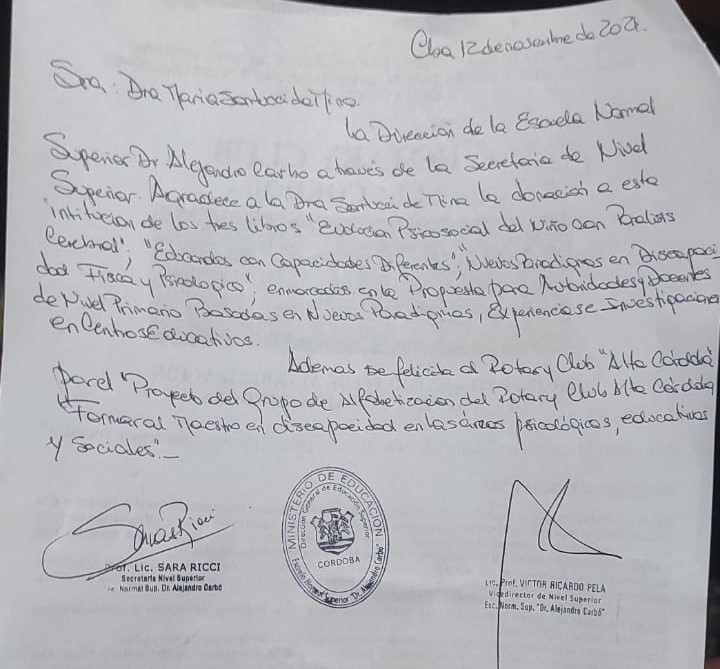 Cba 12 de noviembre de 2021.
Sra: Dra Maria Santucci de Mina.
La Dirección de la Escuela Normal
Superior Dr Alejandro Carbo a través de la Secretaria de Nivel
Superior. Agradece a la Dra Santucci de Mina la donación a esta
intitucion de los tres libros "Evolucion Psicosocial del Niño con Paralisis
Cerebral"; "Educandos con Capacidades Diferentes"; "Nuevos Paradigmas en Discapaci
dad Fisica y Psicologica"; enmarcados en la Propuesta para Autoridades y Docentes
de Nivel Primario Basadas en Nuevos Paradigmas, Experiencias e Investigaciones
en Centros Educativos.
Ademas se felicita al Rotary Club "Alta Córdoba"
por el "Proyecto del Grupo de Alfabetizacion del Rotary Club Alta Córdoba
"Formar al Maestro en discapacidad en las áreas psicológicas, educativas
y sociales".-
Sara Ricci
Prof. Lic. SARA RICCI
Secretaria Nivel Superior
Normal Sup. Dr. Alejandro Carbó
MINISTERIO DE EDUCACION
Dirección General de Educación Superior
CORDOBA
Escuela Normal Superior "Dr. Alejandro Carbó"
Lic. Prof. VICTOR RICARDO PELA
Vicedirector de Nivel Superior
Esc. Norm. Sup. "Dr. Alejandro Carbó"